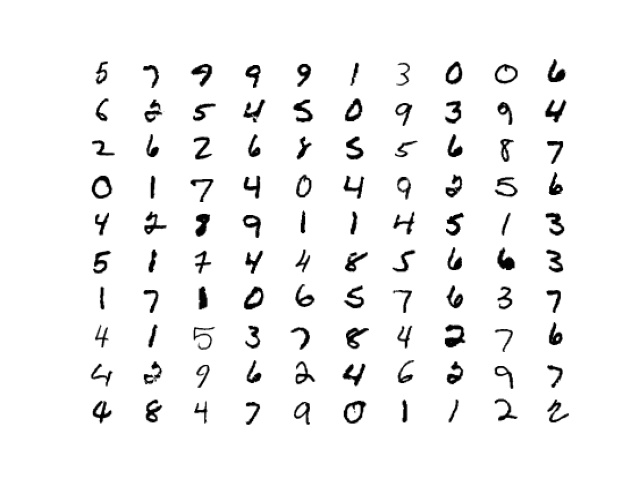 5 7 9 9 9 1 3 0 0 6
6 2 5 4 5 0 9 3 9 4
2 6 2 6 8 5 5 6 8 7
0 1 7 4 0 4 9 2 5 6
4 2 8 9 1 1 4 5 1 3
5 1 7 4 4 8 5 6 6 3
1 7 1 0 6 5 7 6 3 7
4 1 5 3 7 8 4 2 7 6
4 2 9 6 2 4 6 2 9 7
4 8 4 7 9 0 1 1 2 2